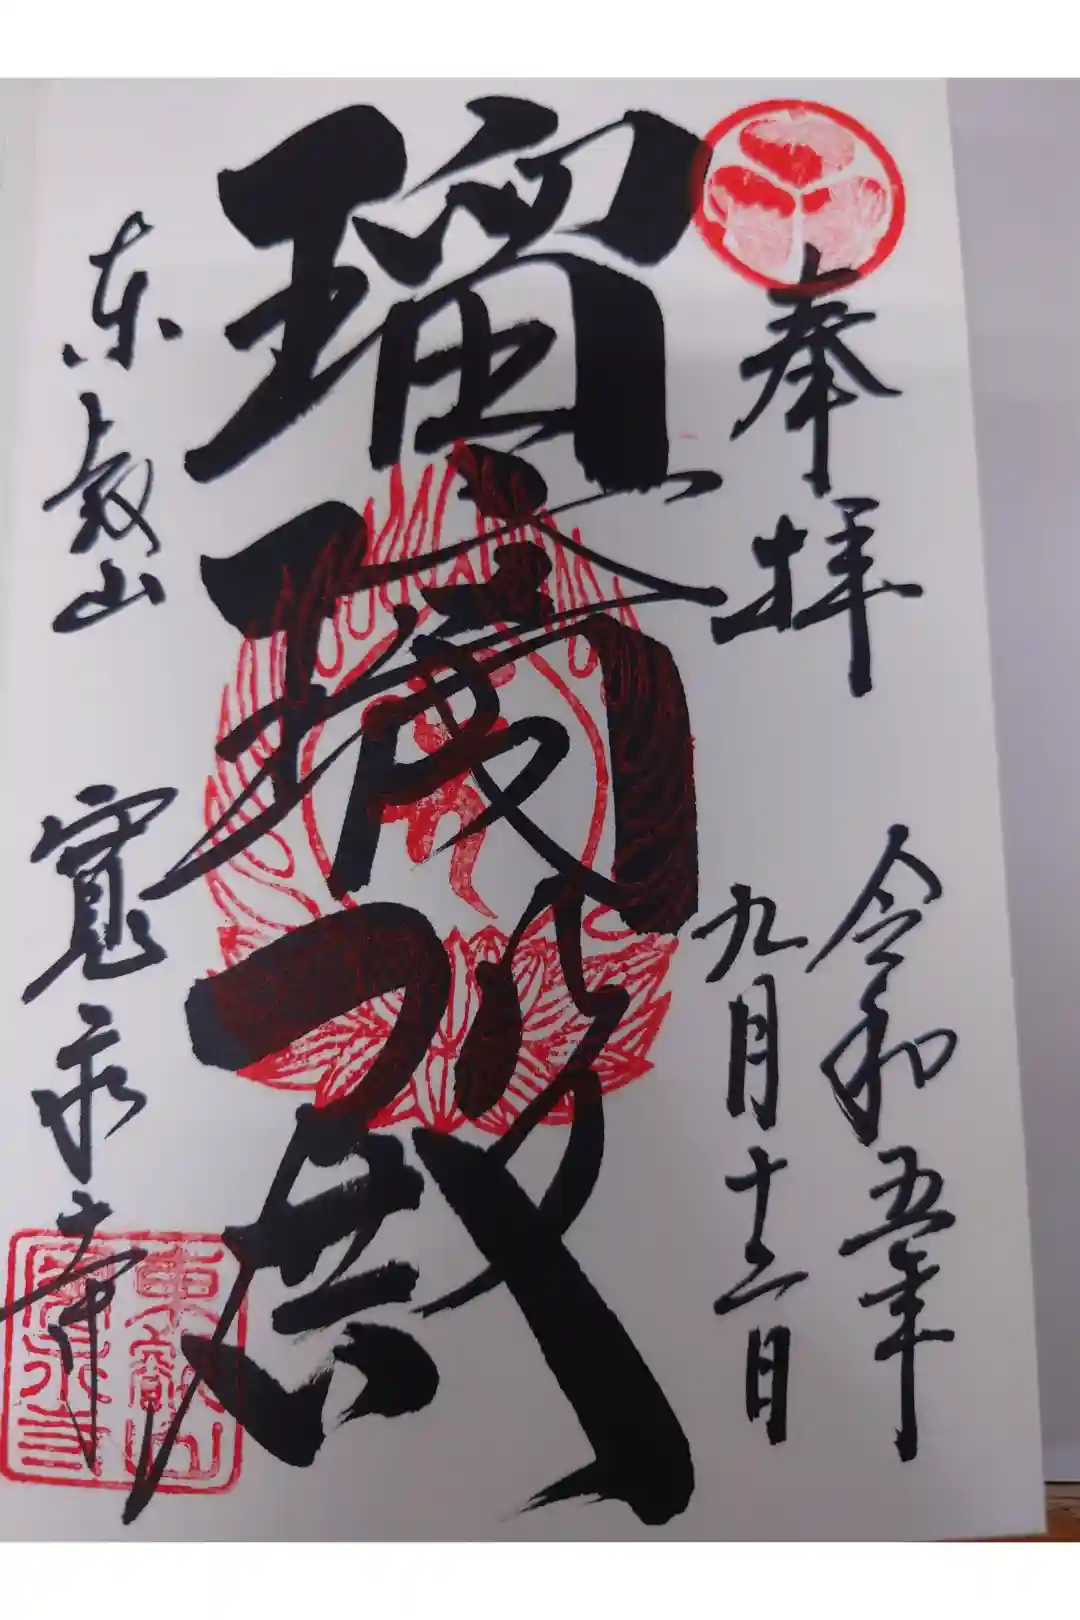 奉拝
令和五年
九月十二日
瑠璃殿
東叡山 寛永寺
東叡山